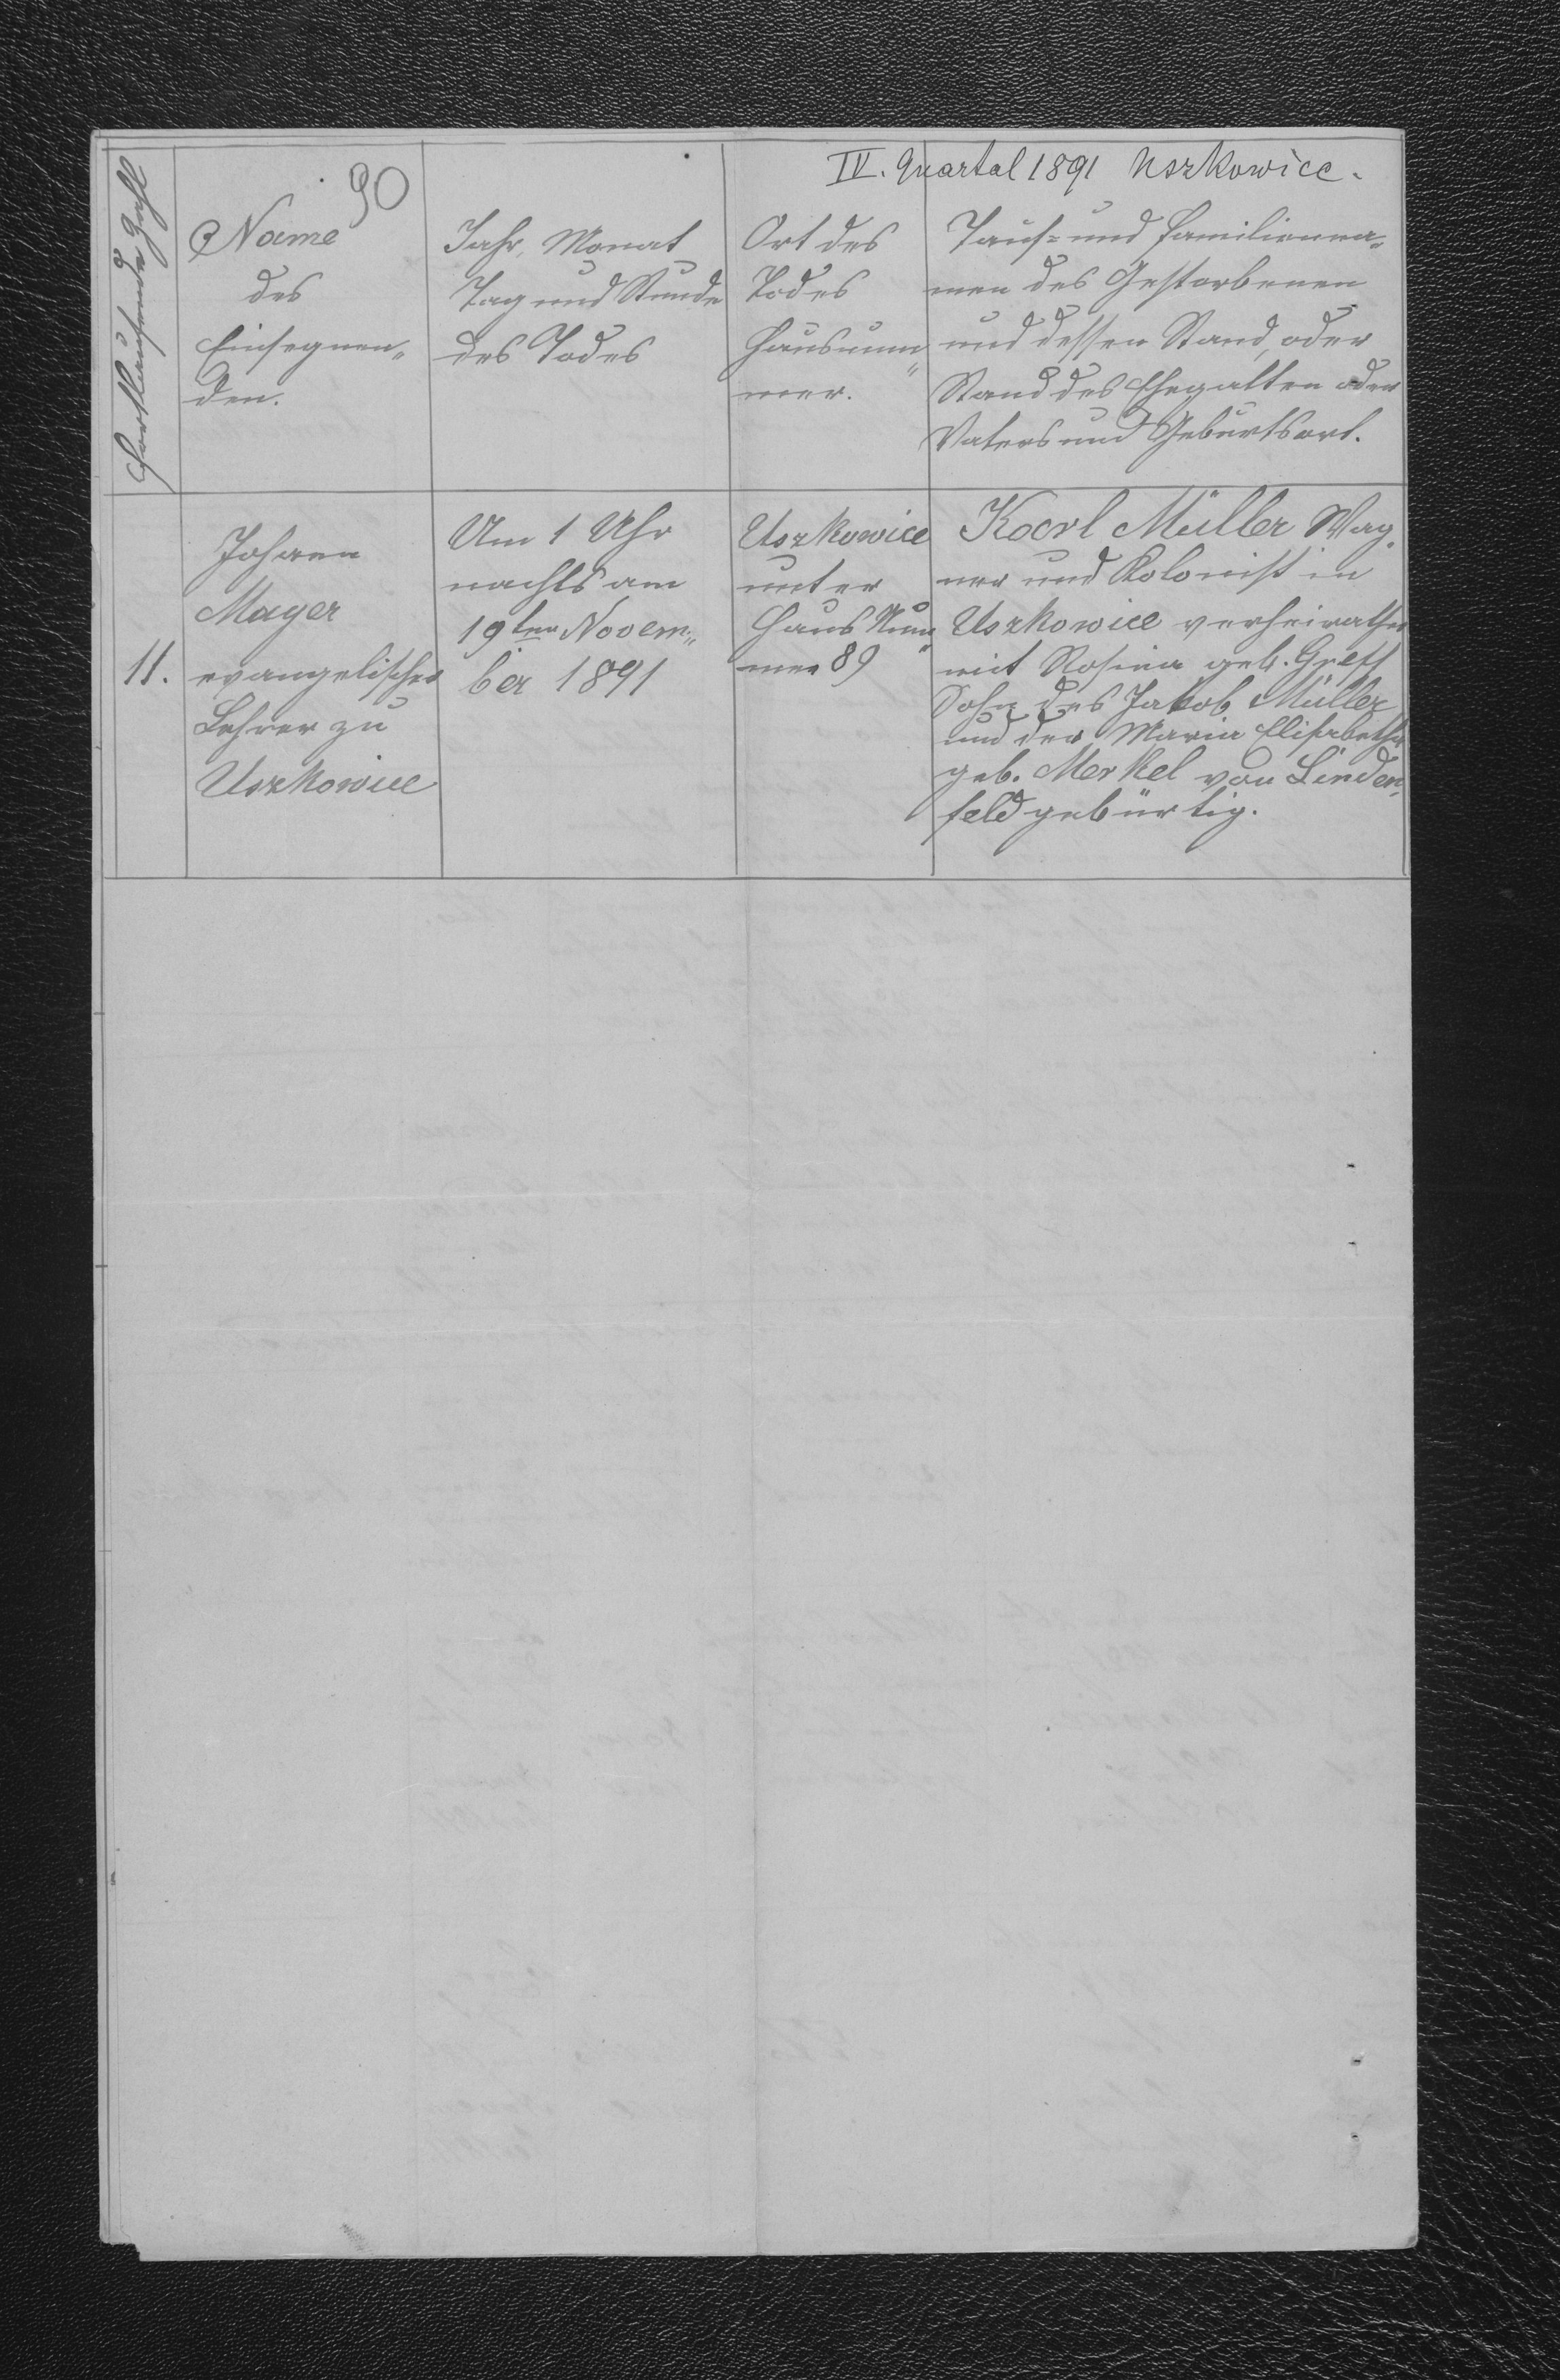 90
IV. Quartal 1891 Uszkowice.
Fortlaufende Zahl
Name
des
Einsegnen„
den.
Jahr, Monat
Tag und Stunde
des Todes
Ort des
Todes
Hausnum„
mer.
Tauf= und Familienna=
men des Gestorbenen
und dessen Stand, oder
Stand des Ehegatten oder
Vaters und Geburtsort.
11.
Johann
Mayer
evangelischer
Lehrer zu
Uszkowice
Um 1 Uhr
nachts am
19ten Novem„
ber 1891
Uszkowice
unter
Haus Num„
mer 89
Karl Müller Wag„
ner und Kolonist in
Uszkowice verheirathet
mit Rosina geb. Greth
Sohn des Jakob Müller
und der Maria Elisabetha
geb. Merkel von Linden„
feld gebürtig.